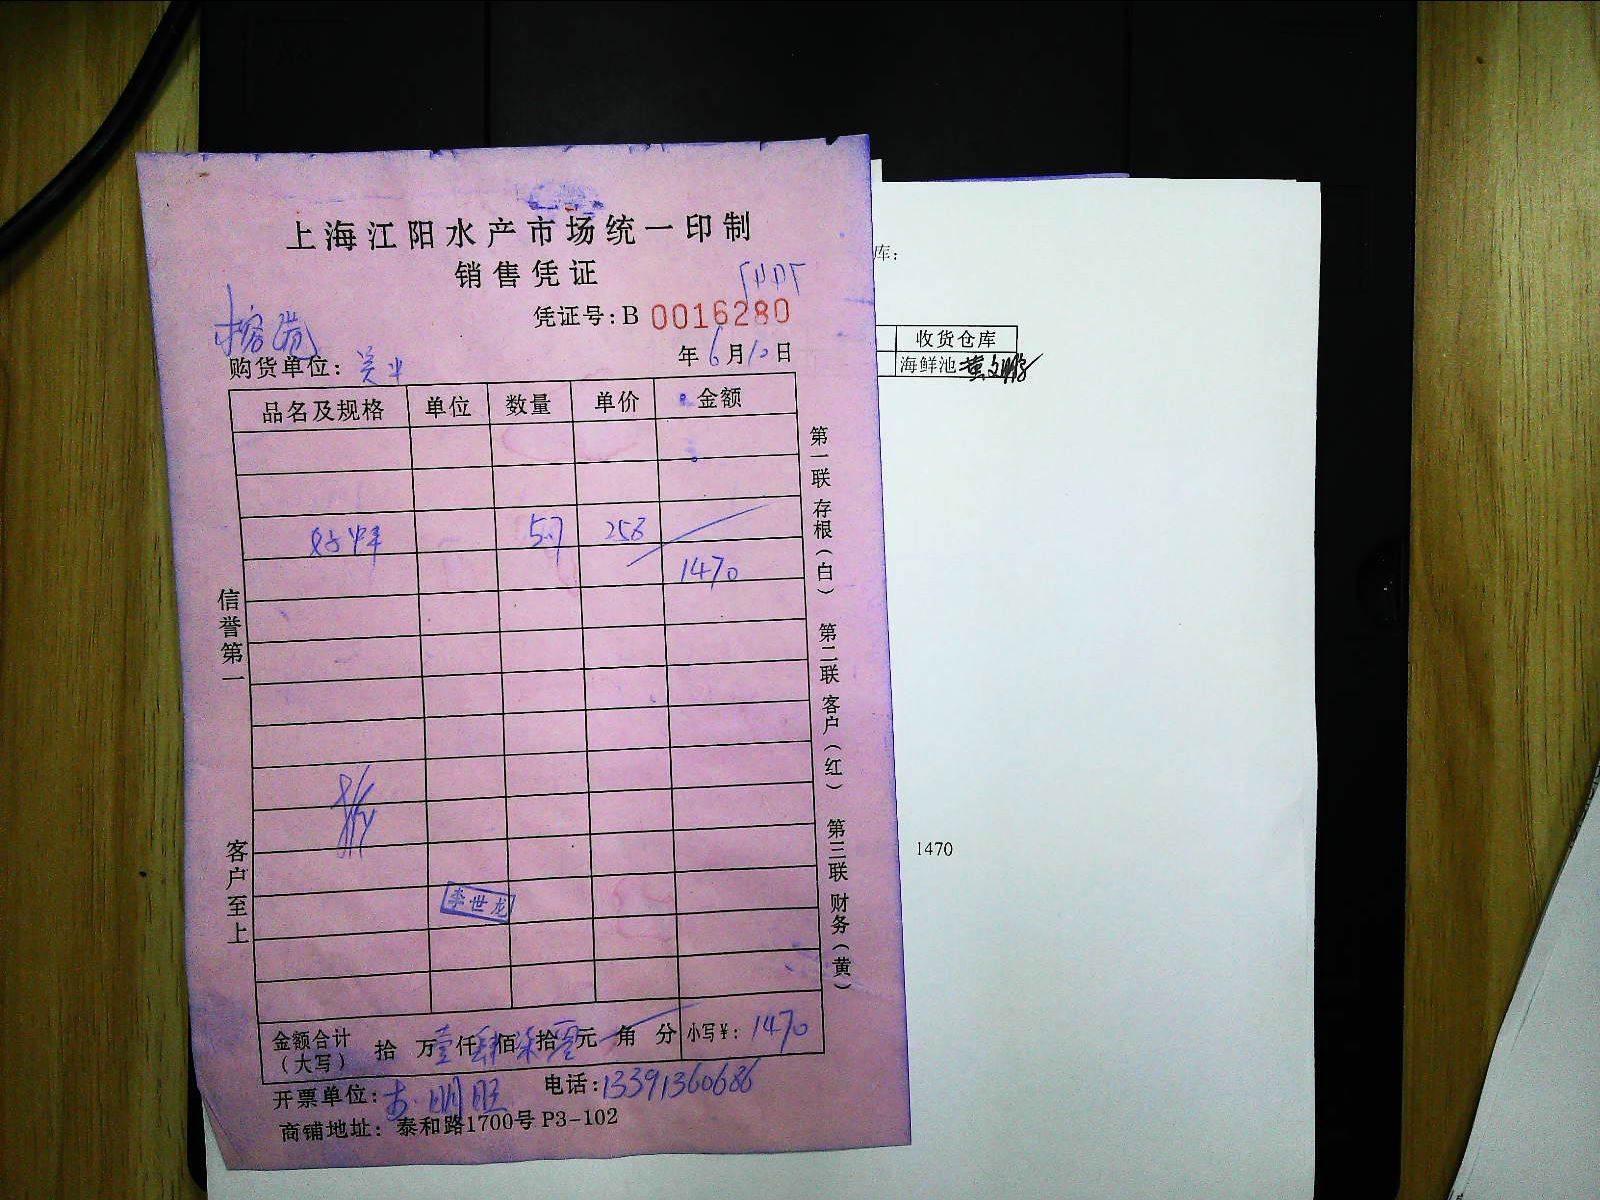 上海江阳水产市场统一印制
销售凭证
凭证号:B 0016280
年6月10日
购货单位:
品名及规格 单位 数量 单价 金额
5.7 258
1470
李世龙
金额合计（大写） 拾 万壹仟肆佰柒拾零元 角 分 小写¥: 1470
开票单位:
电话:13391360686
商铺地址: 泰和路1700号 P3-102
信誉第一
客户至上
第一联 存根（白） 第二联 客户（红） 第三联 财务（黄）
库:
收货仓库
海鲜池
1470